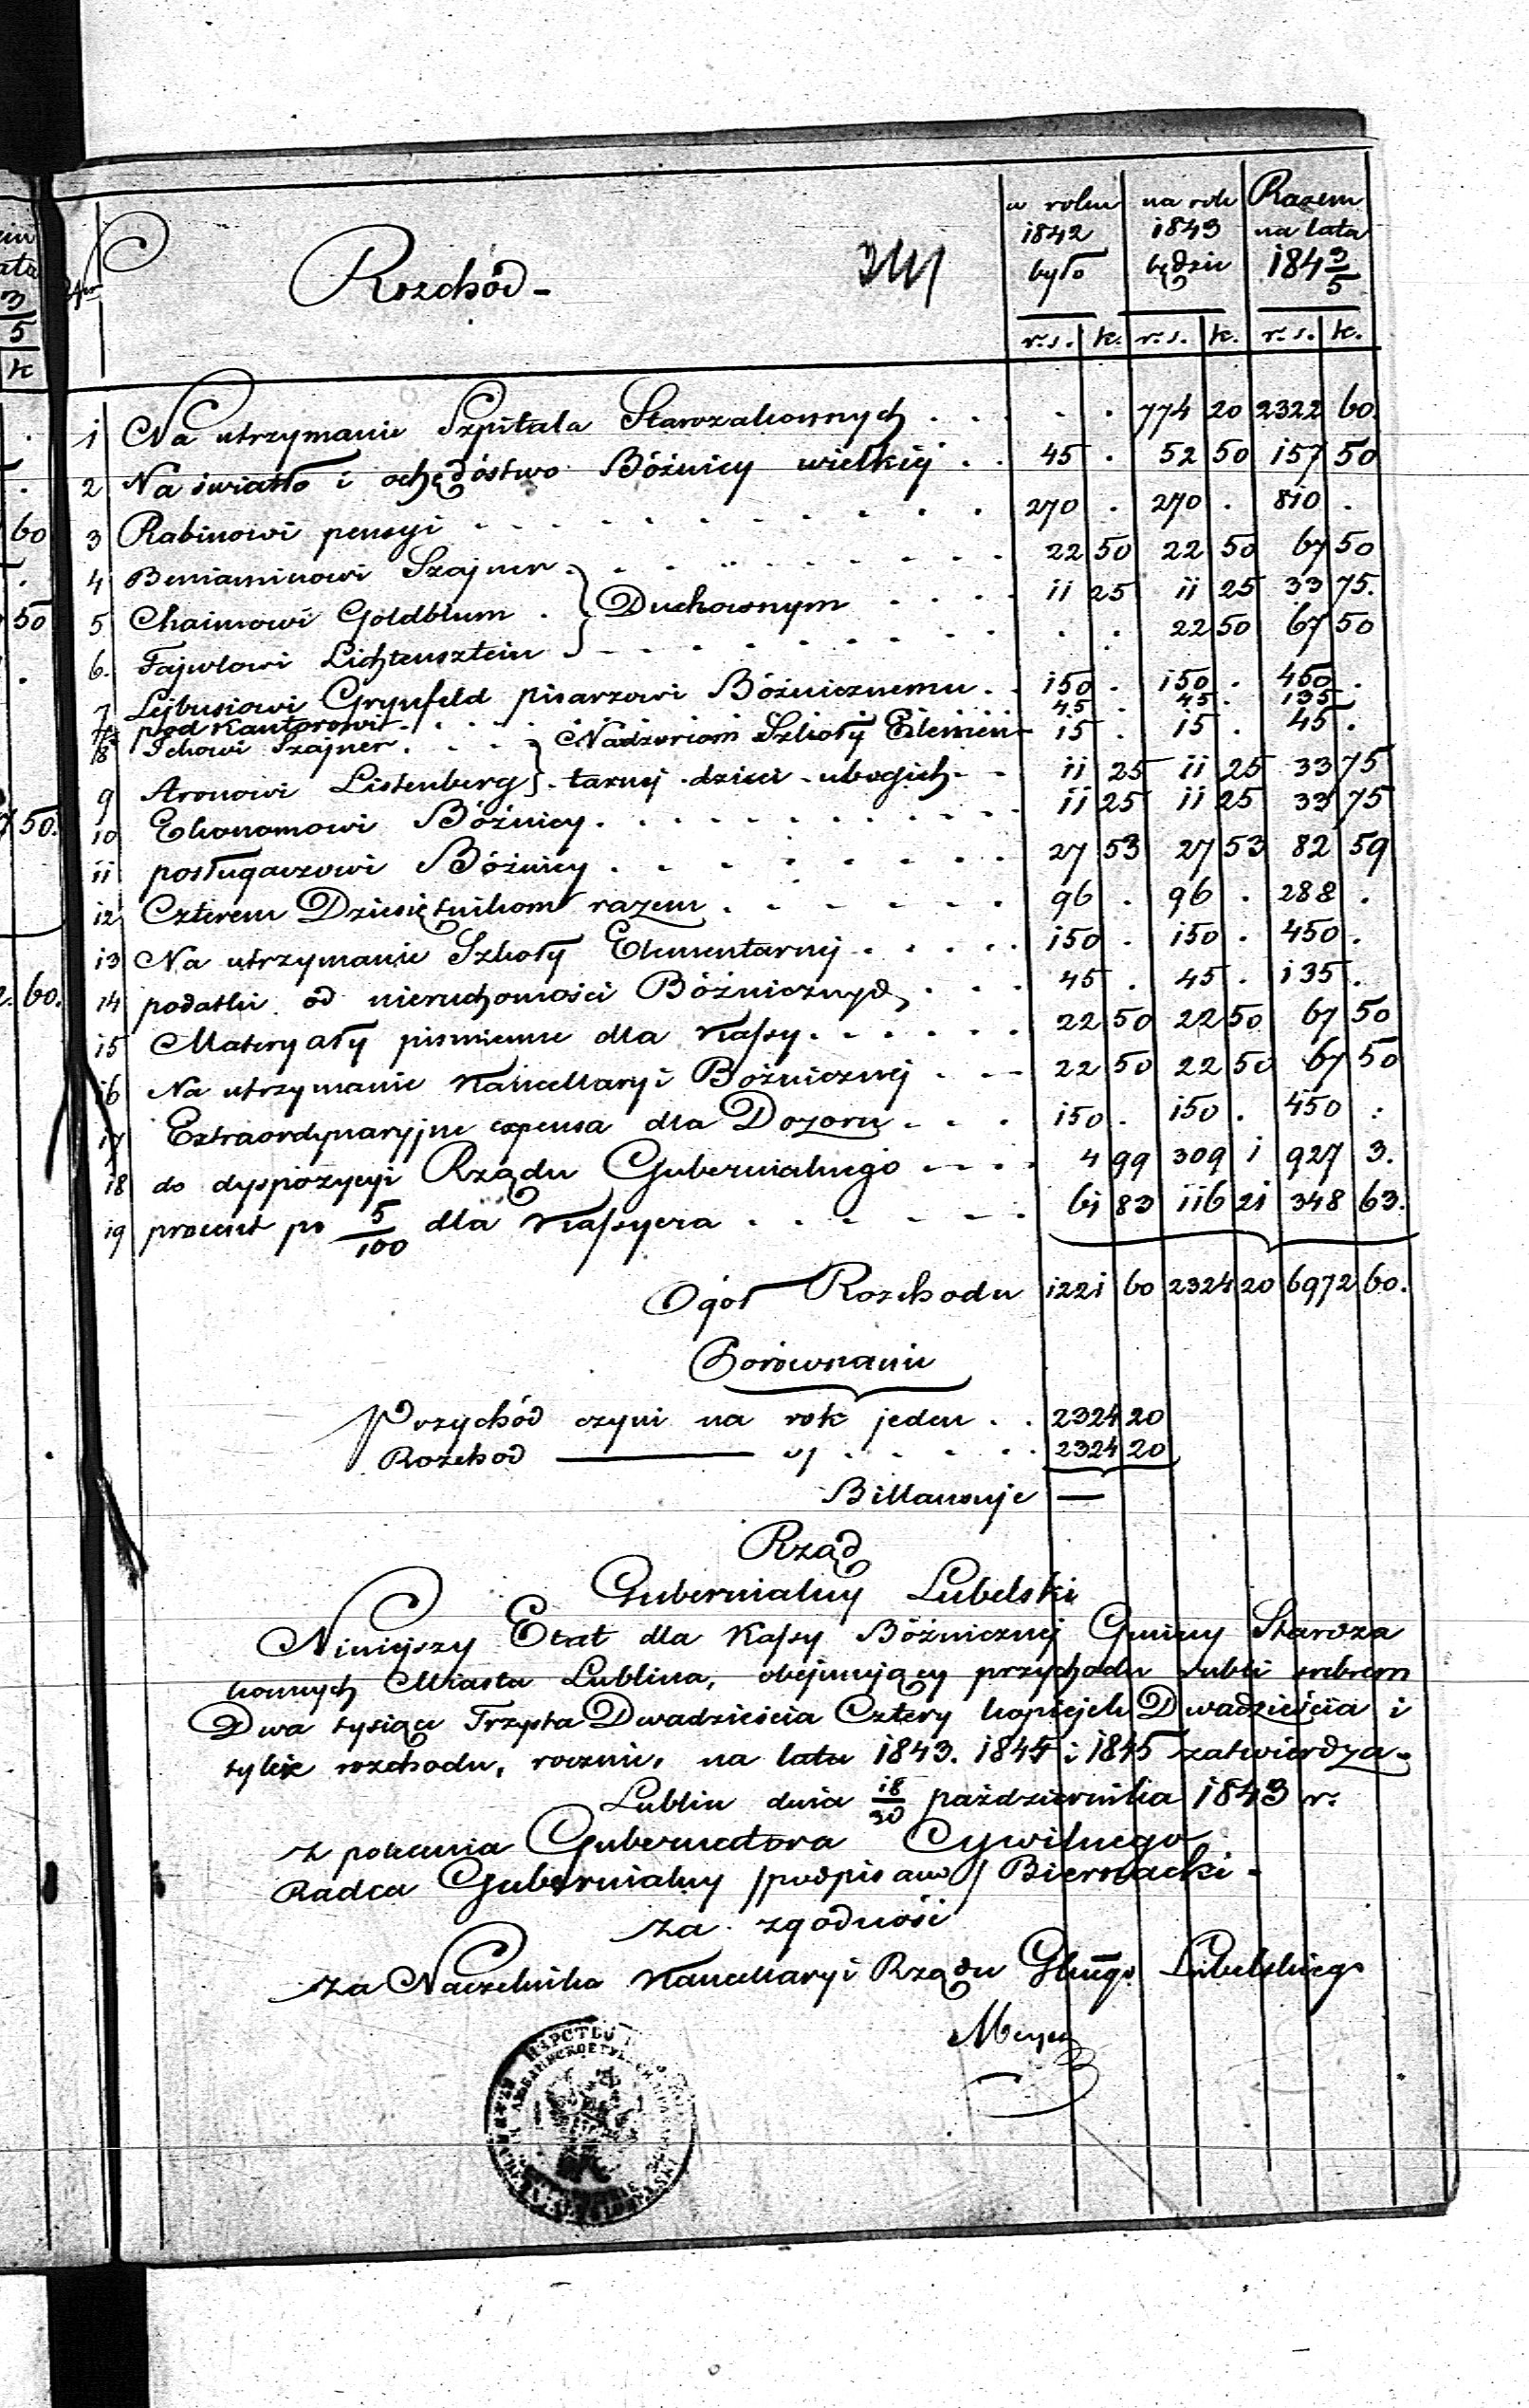 Rozchód -
w roku 1842 było
na rok 1843 będzie
Razem na lata 184 3/5
r. s. k. r. s. k. r. s. k.
1 Na utrzymanie Szpitala Starozakonnych . . . . . 774 20 2322 60.
2 Na światło i ochędóstwo Bóżnicy wielkiej . . 45 . 52 50 157 50
3 Rabinowi pensyi . . . . . . . . . . 270 . 270 . 810 .
4 Beniaminowi Szajner . . . . . . . . 22 50 22 50 67 50
5 Chaimowi Goldblum . } Duchownym . . . . 11 25 11 25 33 75.
6. Fajwlowi Lichtensztein . . . . . . . . . . 22 50 67 50
7 Lejbusiowi Grynfeld pisarzowi Bóżnicznemu . . 150 . 150 . 450 .
pod Kantorowi . . . . 45 . 45 . 135 .
8 Ickowi Szajner . . . } Nadzoriom Szkoły Elemen- 15 . 15 . 45 .
9 Aronowi Listenberg } tarnej dzieci ubogich - - 11 25 11 25 33 75
10 Ekonomowi Bóżnicy . . . . . . . . . 11 25 11 25 33 75
11 posługaczowi Bóżnicy . . . . . . . . 27 53 27 53 82 59
12 Czterem Dziesiętnikom razem . . . . . . 96 . 96 . 288 .
13 Na utrzymanie Szkoły Elementarnej . . . . . 150 . 150 . 450 .
14 podatki od nieruchomości Bóżnicznych . . . 45 . 45 . 135 .
15 Materyały piśmienne dla Kassy . . . . . . 22 50 22 50 67 50
16 Na utrzymanie Kancellaryi Bóżnicznej . . . 22 50 22 50 67 50
17 Extraordynaryjne expensa dla Dozoru . . . 150 . 150 . 450 :
18 do dyspozycyi Rządu Gubernialnego . . . . 4 99 309 1 927 3.
19 procent po 5/100 dla Kassyera . . . . . . 61 83 116 21 348 63.
Ogół Rozchodu 1221 60 2324 20 6972 60.
Porównanie
Przychód czyni na rok jeden . . 2324 20
Rozchod — „ . . . . . 2324 20
Billansuje —
Rząd
Gubernialny Lubelski
Niniejszy Etat dla Kassy Bóżnicznej Gminy Staroza
konnych Miasta Lublina, obejmujący przychodu rubli srebrem
Dwa tysiące Trzysta Dwadzieścia Cztery kopiejek Dwadzieścia i
tyleż rozchodu, rocznie, na lata 1843. 1844 i 1845 zatwierdza.
Lublin dnia 18/30 października 1843 r.
z polecenia Gubernatora Cywilnego
Radca Gubernialny /podpisano/ Biernacki -
za zgodność
za Naczelnika Kancellaryi Rządu Gbngo Lubelskiego